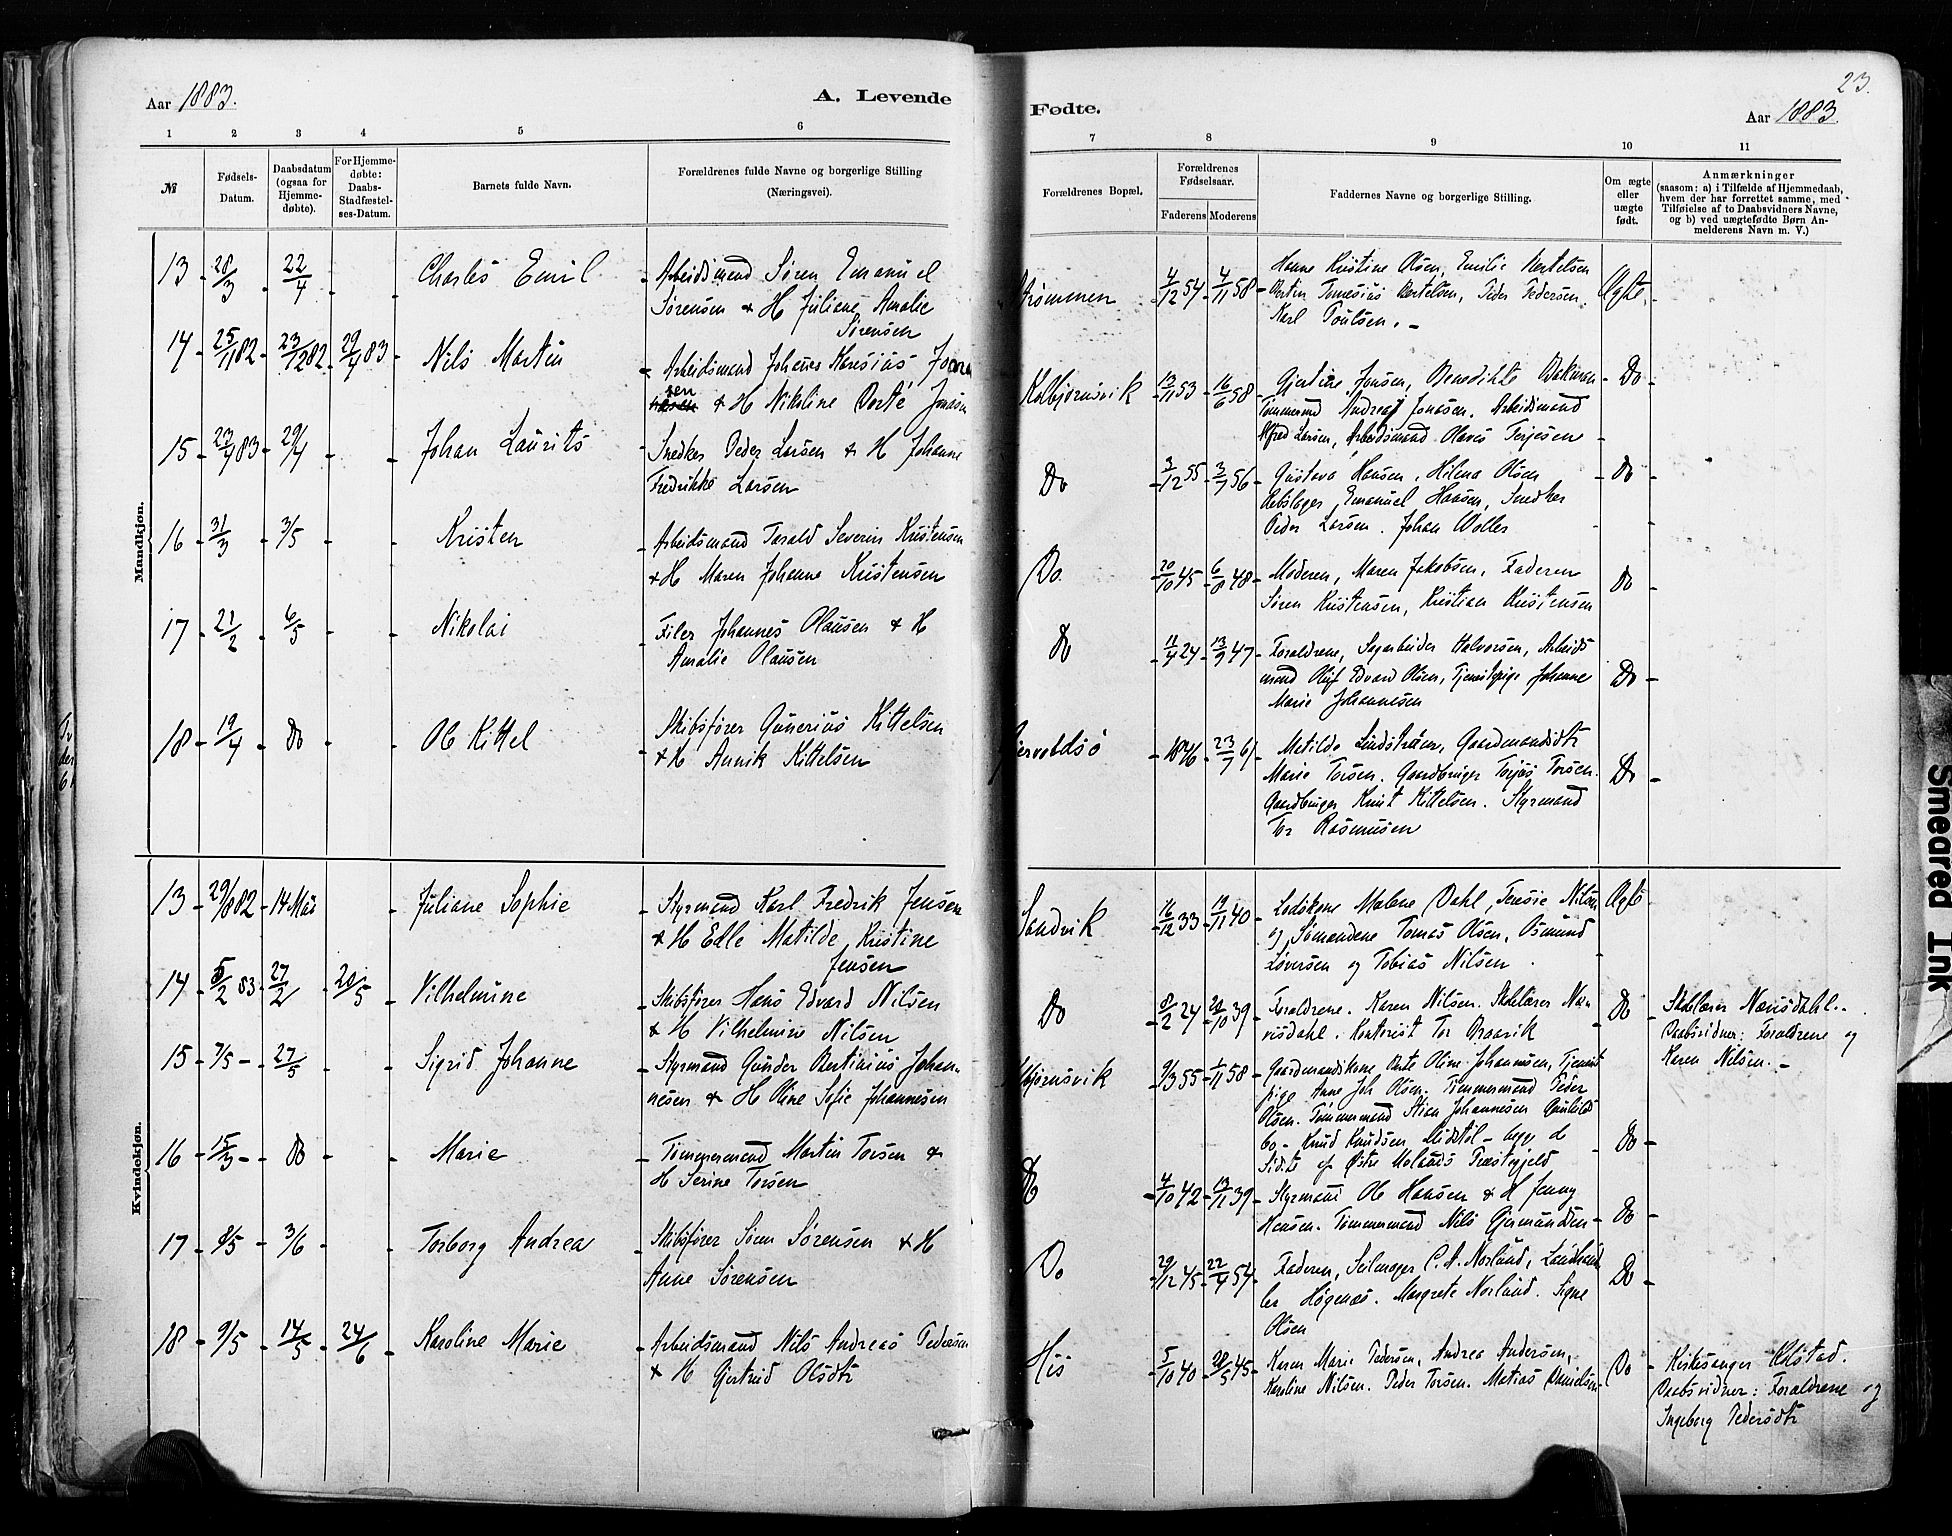 23.
Aar 1883.
A. Levende
Fødte.
Aar 1883.
1 2 3 4 5 6
7 8 9 10 11
№
Fødsels-
Datum.
Daabsdatum
(ogsaa for
Hjemme-
døbte).
For Hjemme-
døbte:
Daabs-
Stadfæstel-
ses-Datum.
Barnets fulde Navn.
Forældrenes fulde Navne og borgerlige Stilling
(Næringsvei).
Forældrenes Bopæl.
Forældrenes
Fødselsaar.
Faderens
Moderens
Faddernes Navne og borgerlige Stilling.
Om ægte
eller
uægte
født.
Anmærkninger
(saasom: a) i Tilfælde af Hjemmedaab,
hvem der har forrettet samme, med
Tilføielse af to Daabsvidners Navne,
og b) ved uægtefødte Børn An-
melderens Navn m. V.)
Mandkjøn.
13 28/3 22/4 Charles Emil
Arbeidsmand Søren Emanuel
Sørensen & H Juliane Amalie
Sørensen
4/12 54 4/11 58
Hanne Kristine Olsen, Emilie Bertelsen
Bertin Tomesius Bertelsen, Peder Pedersen.
Karl Poulsen.
Ægte
14 25/11 82 23/12 82 29/4 83 Nils Martin
Arbeidsmand Johanes Karesius Jona
sen & H Nikoline Dorte Jonasn
Kolbjørnsvik 13/11 53 16/6 58
Gjertine Jonsen, Benedikte Bakman
Tømmermand Andreas Jonasen. Arbeidsmand
Alfred Larsen, Arbeidsmand Olaves Terjesen
Do
15 23/4 83 29/4 Johan Laurits
Snedker Peder Larsen & H Johanne
Fredrikke Larsen
Do 3/12 55 3/7 56
Gustava Hansen, Helena Olsen
Rebslager Emanuel Hansen, Snedker
Peder Larsen. Johan Woller
Do
16 31/3 3/5 Kristen
Arbeidsmand Tarald Severin Kristensen
& H Maren Johanne Kristensen
Do 20/10 45 6/8 48
Moderen, Maren Jakobsen, Faderen
Søren Kristensen, Kristian Kristensen
Do
17 21/2 6/5 Nikolai
Filer Johannes Olausen & H
Amalie Olausen
Do 11/4 24 13/9 47
Forældrene, Sagarbeider Halvorsen, Arbeids
mand Oluf Edvard Olsen, Tjenistpige Johanne
Marie Johannesen
Do
18 19/4 Do Ole Kittel
Skibsfører Gunerius Kittelsen
& H Annik Kittelsen
1846 23/7 61
Matilde Lindstrøm, Gaardmandsdtr
Marie Torsen. Gaardbruger Terjus Torsen.
Gaardbruger Knut Kittelsen. Styrmand
Tor Rasmusen
Do
Kvindekjøn.
13 29/8 82 14 Mai Juliane Sophie
Styrmand Karl Fredrik Jensen
& H Edle Matilde Kristine
Jensen
Sandvik 16/12 33 19/11 40
Lodskone Malene Dahl, Teresie Nilsen
og Sømændene Tomas Olsen, Osmund
Løversen og Tobias Nilsen
Ægte
14 5/2 83 27/2 20/5 Vilhelmine
Skibsfører Hans Edvard Nilsen
& H Vilhelmine Nilsen
Do 8/2 24 20/10 39
Forældrene. Karen Nilsen. Skolelærer Næ
risdahl. Kontorist Tor Braavik
Do
Skolelærer Nærisdahl.
Daabsvidner: Forældrene og
Karen Nilsen.
15 7/5 27/5 Sigrid Johanne
Styrmand Gunder Bertinius Johan-
nesen & H Oline Sofie Johannesen
Kolbjørnsvik 9/3 55 1/11 58
Gaardmandskone Berte Oline Johannesen, Tjenist
pige Anne Joh Olsen. Tømmermand Peder
Olsen. Tømmermand Stian Johannesen
bo- Knud Knudsen Midtøl - begge de
Sidste af Østre Molands Præstegjeld
Do
16 15/3 Do Marie
Tømmermand Martin Torsen &
H Serine Torsen
Do 4/10 42 13/11 39
Styrmand Ole Hansen & H Jenny
Hansen. Tømmermand Nils Gjermundsen
Do
17 9/5 3/6 Torborg Andrea
Skibsfører Søren Sørensen & H
Anne Sørensen
Do 29/12 45 22/4 54
Faderen, Seilmager C. A. Norlund, Landhand
ler Høgenæs. Margrete Norlund. Signe
Olsen
Do
18 9/5 14/5 24/6 Karoline Marie
Arbeidsmand Nils Andreas Pedersen
& H Gjertrud Olsdtr
His 5/10 40 28/5 45
Karen Marie Pedersen, Andrea Andersen,
Karoline Nilsen. Peder Torsen. Matias Danielsen
Do
Kirkesanger Kolstad.
Daabsvidner: Forældrene og
Ingeborg Pedersdtr
Smeared Ink